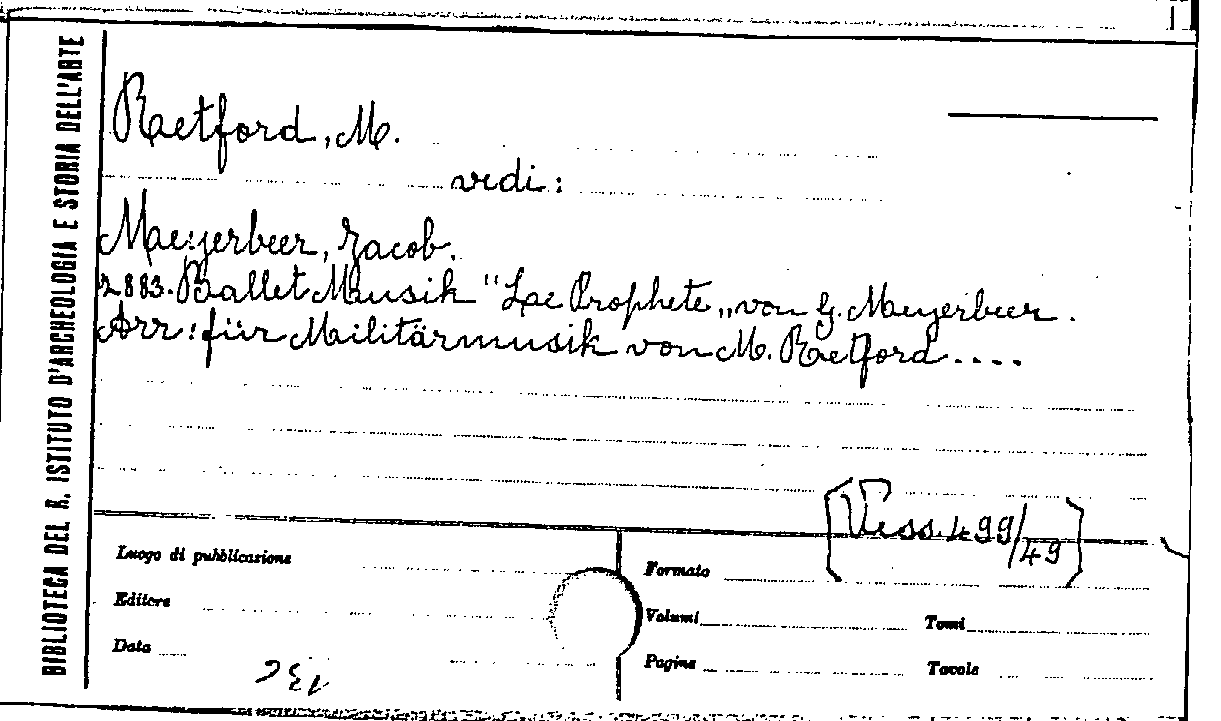 BIBLIOTECA DEL R. ISTITUTO D'ARCHEOLOGIA E STORIA DELL'ARTE
Retford, M.
vedi:
Meyerbeer, Jacob.
2883. Ballet Musik "Le Prophete„ von G. Meyerbeer.
Arr: für Militärmusik von M. Retford....
[Vess. 499/49]
Luogo di pubblicazione
Editore
Data
Formato
Volumi
Tomi
Pagine
Tavole